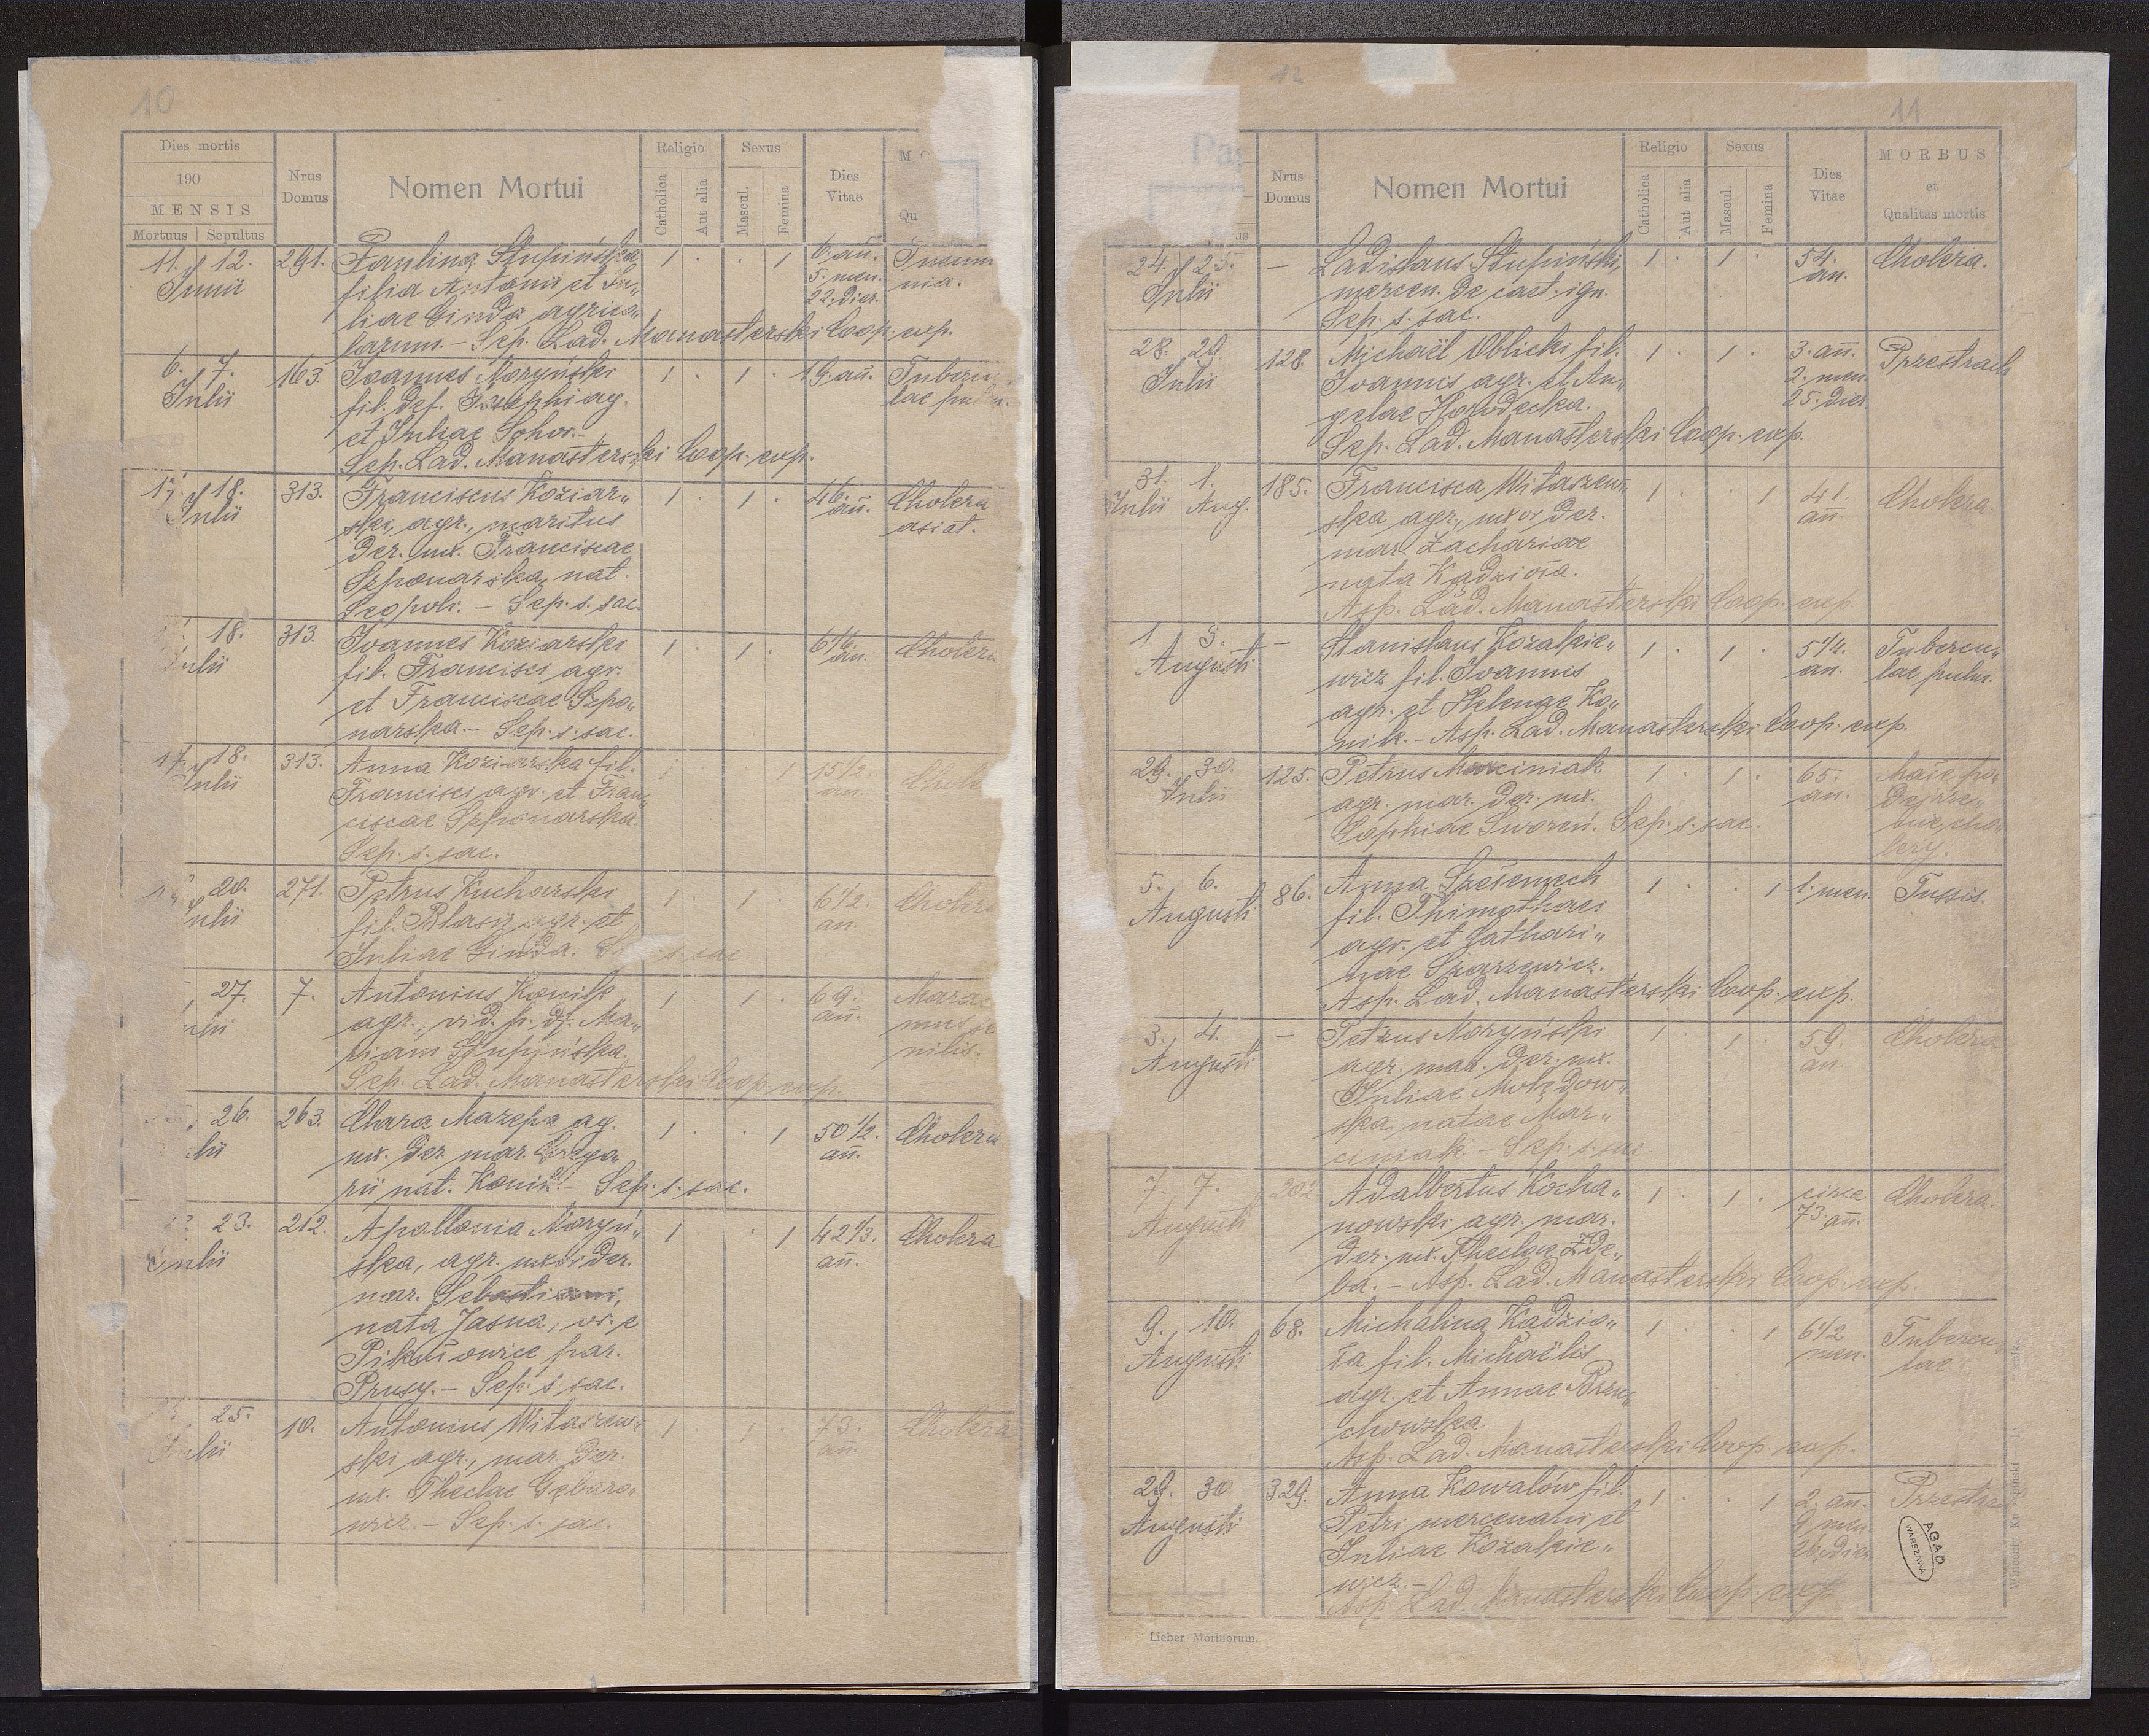 10
Dies mortis
190
MENSIS
Mortuus Sepultus
Nrus Domus
Nomen Mortui
Religio
Catholica
Aut alia
Sexus
Mascul.
Femina
Dies Vitae
Qu
11. 12. 291. Paulina Stupińska 1 . . 1 6. an. Pneum
Junii filia Antonii et Ju„ 5. men. nia.
liae Ginda agrico„ 22. dier.
larum. – Sep. Lad. Manasterski Coop. exp.
6. 7. 163. Joannes Moryński 1 . 1 . 19. an. Tubercu
Julii fil. def. Josephi ag. lae
et Juliae Sohor. –
Sep. Lad. Manasterski Coop. exp.
17 18. 313. Franciscus Koziar„ 1 . 1 . 46. an. Cholera
Julii ski, agr., maritus asiat.
der. ux. Franciscae
Szponarska, nat.
Leopoli. – Sep. s. sac.
18. 313. Joannes Koziarski 1 . 1 . 6 1/6. an. Cholera
Julii fil. Francisci agr.
et Franciscae Szpo„
narska. – Sep. s. sac.
17 18. 313. Anna Koziarska fil. 1 . . 1 15 1/2. an. Chole
Julii Francisci agr. et Fran„
ciscae Szponarska.
Sep. s. sac.
20. 271. Petrus Kucharski 1 . 1 . 6 1/2. an. Cholera
Julii fil. Blasii agr. et
Juliae Ginda. s. sac.
27. 7. Antonius Konik 1 . 1 . 69. an. Maras
agr., vid. p. df. Ma„ mus se
riam Stupińska. nilis.
Sep. Lad. Manasterski Coop. exp.
26. 263. Clara Mazepa ag. 1 . . 1 50 1/2. an. Cholera
lii ux. der. mar. Grego„
rii nat. Konik – Sep. s. sac.
23. 212. Apollonia Moryń„ 1 . . 1 42 1/3. an. Cholera
Julii ska, agr. uxor der.
mar. Sebastiani,
nata Jasna, or. e
Pikułowice par.
Prusy. – Sep. s. sac.
25. 10. Antonius Witaszew„ 1 . 1 . 73. an. Cholera
Julii ski agr., mar. der.
ux. Theclae Gębaro„
wicz. – Sep. s. sac.
12
11
Nrus Domus
Nomen Mortui
Religio
Catholica
Aut alia
Sexus
Mascul.
Femina
Dies Vitae
MORBUS
et
Qualitas mortis
24. 25. – Ladislaus Stupiński, 1 . 1 . 54. an. Cholera.
Julii mercen. de caet. ign.
Sep. s. sac.
28. 29. 128. Michaël Oblicki fil. 1 . 1 . 3. an. Przestrach
Julii Joannis agr. et An„ 2. men.
gelae Horodecka. 25. dier.
Sep. Lad. Manasterski Coop. exp.
31. 1. 185. Francisca Witaszew„ 1 . . 1 41. an. Cholera
Julii Aug. ska agr., uxor der.
mar. Zachariae
nata Kądzioła.
Asp. Lad. Manasterski Coop. exp.
1 3. – Stanislaus Kozakie„ 1 . 1 . 5 1/4. an. Tubercu„
Augusti wicz fil. Joannis lae pulm.
agr. et Helenae Ko„
nik. – Asp. Lad. Manasterski Coop. exp.
29. 30. 125. Petrus Marciniak 1 . 1 . 65. an.
Julii agr. mar. der. ux.
Sophiae Sworeń. Sep. s. sac.
5. 6. 86. Anna 1 . . 1 1. men. Tussis.
Augusti fil. Thimothaei
agr. et Cathari„
nae Skarzewicz.
Asp. Lad. Manasterski Coop. exp.
3. 4. – Petrus Moryński 1 1 . 59. an. Cholera
Augusti agr. mar. der. ux.
Juliae
ska natae Mar„
ciniak. – Sep. s. sac.
7. 7. 202 Adalbertus Kocha„ 1 . 1 . circa 73 an. Cholera.
Augusti nowski agr. mar.
der. ux. Theclae Zde„
ba. – Asp. Lad. Manasterski Coop. exp.
9. 10. 68. Michalina Kądzio„ 1 . . 1 6 1/2 men. Tubercu„
Augusti ła fil. Michaëlis lae
agr. et Annae Brzu„
chowska.
Asp. Lad. Manasterski Coop. exp.
29. 30 329. Anna Kowalów fil. 1 . . 1 2. an. Przestra
Augusti Petri mercenarii et 9. men.
Juliae Kozakie„ 26. dier.
wicz. –
Asp. Lad. Manasterski Coop. exp.
AGAD
WARSZAWA
Lieber Mortuorum.